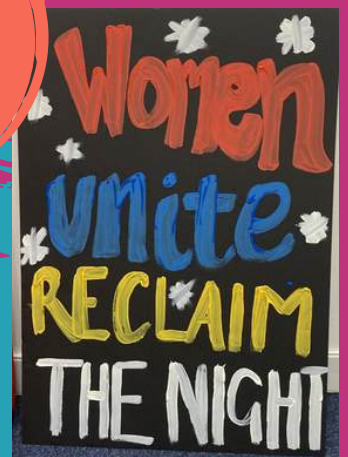 Women
unite
RECLAIM
THE NIGHT